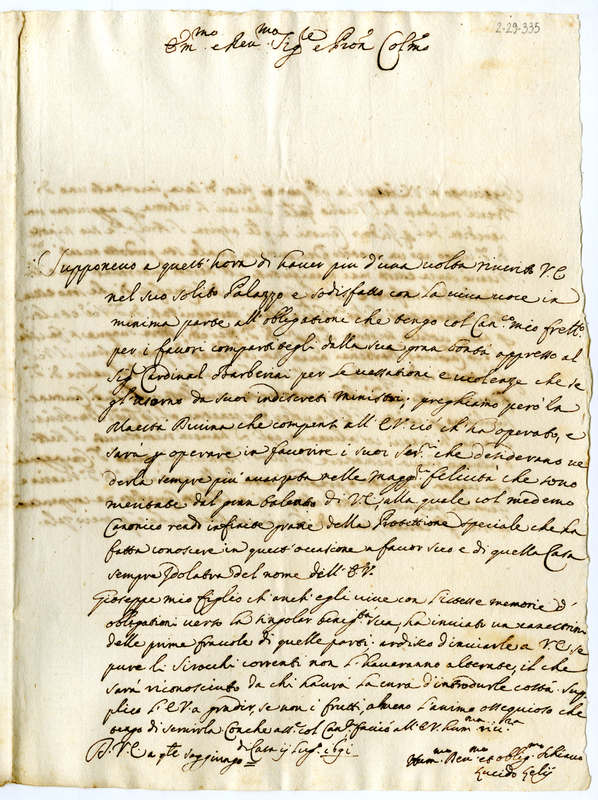 2-29-335
Em.mo e Rev.mo Sig.re e Pron Colmo
Supponevo a quest'hora di haver piu d'una volta riverita V E
nel suo solito Palazzo e sodisfatto con la viva voce in
minima parte all'obligationi che tengo col Can.co mio frello
per i favori compartitegli dalla sua gran bontà appresso al
Sig.r Cardinal Barberini per le vessationi e violenze che se
gl'usorno da suoi indiscreti ministri; preghiamo però la
Maestà Divina che compensi all'E.V. ciò ch'ha operato, e
sarà p operare in favorire i suoi Ser.ri che desiderano ve
derla sempre più avanzata nelle magg.ri felicità che sono
meritate dal gran talento di V E, alla quale col medemo
Canonico rendo infinite gratie della Protettione speciale che ha
fatta conoscere in quest'occasione a favor suo e di quella Casa
sempre Idolatra del nome dell'E.V.
Gioseppe mio figlio ch'anch'egli vive con l'istesse memorie d'
obligationi verso la singolar benig.tà sua, ha inviato un canestrino
delle prime fravole di quelle parti. ardisco d'inviarle a V E, se
pure li sirochi correnti non l'haveranno alterate, il che
sarà riconosciuto da chi haurà la cura d'introdurle costà. Sup
plico l'E.V. a gradir, se non i frutti, almeno l'animo ossequioso che
tengo di servirla Con che col Can.co faccio all'E.V. hum.ma riv.za
D. V. E a q.te sogginago di Casa
Hum.mo Rev.mo et oblig.mo Schiavo